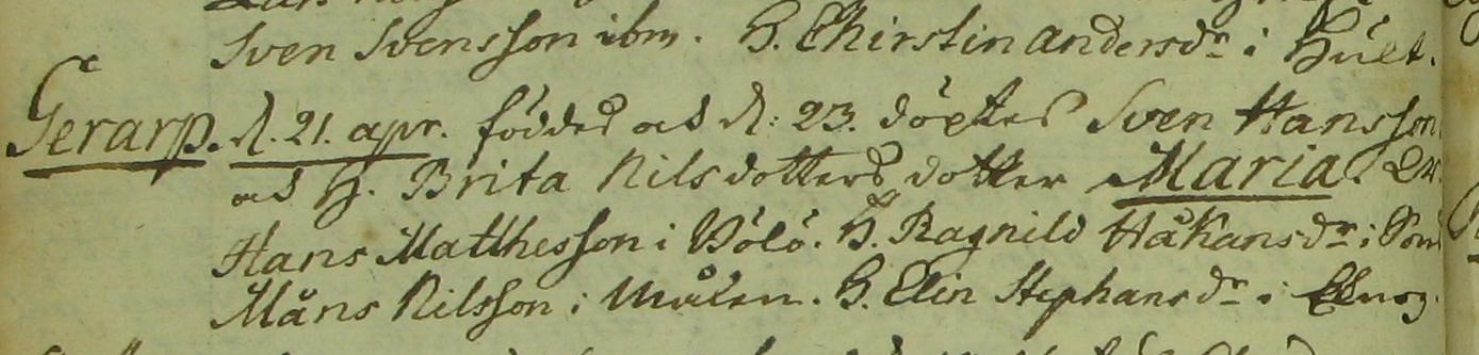 Sven Svensson ibm. H. Chirstin andersdr i Hult.
Gerarp. d. 21. apr. föddes och d: 23. döptes Sven Hansson
och H. Brita Nilsdotters dotter Maria.
Hans Matthesson i Bölö. H. Ragnild Håkansdr i
Måns Nilsson i Målen. H. Elin Stephansdr i